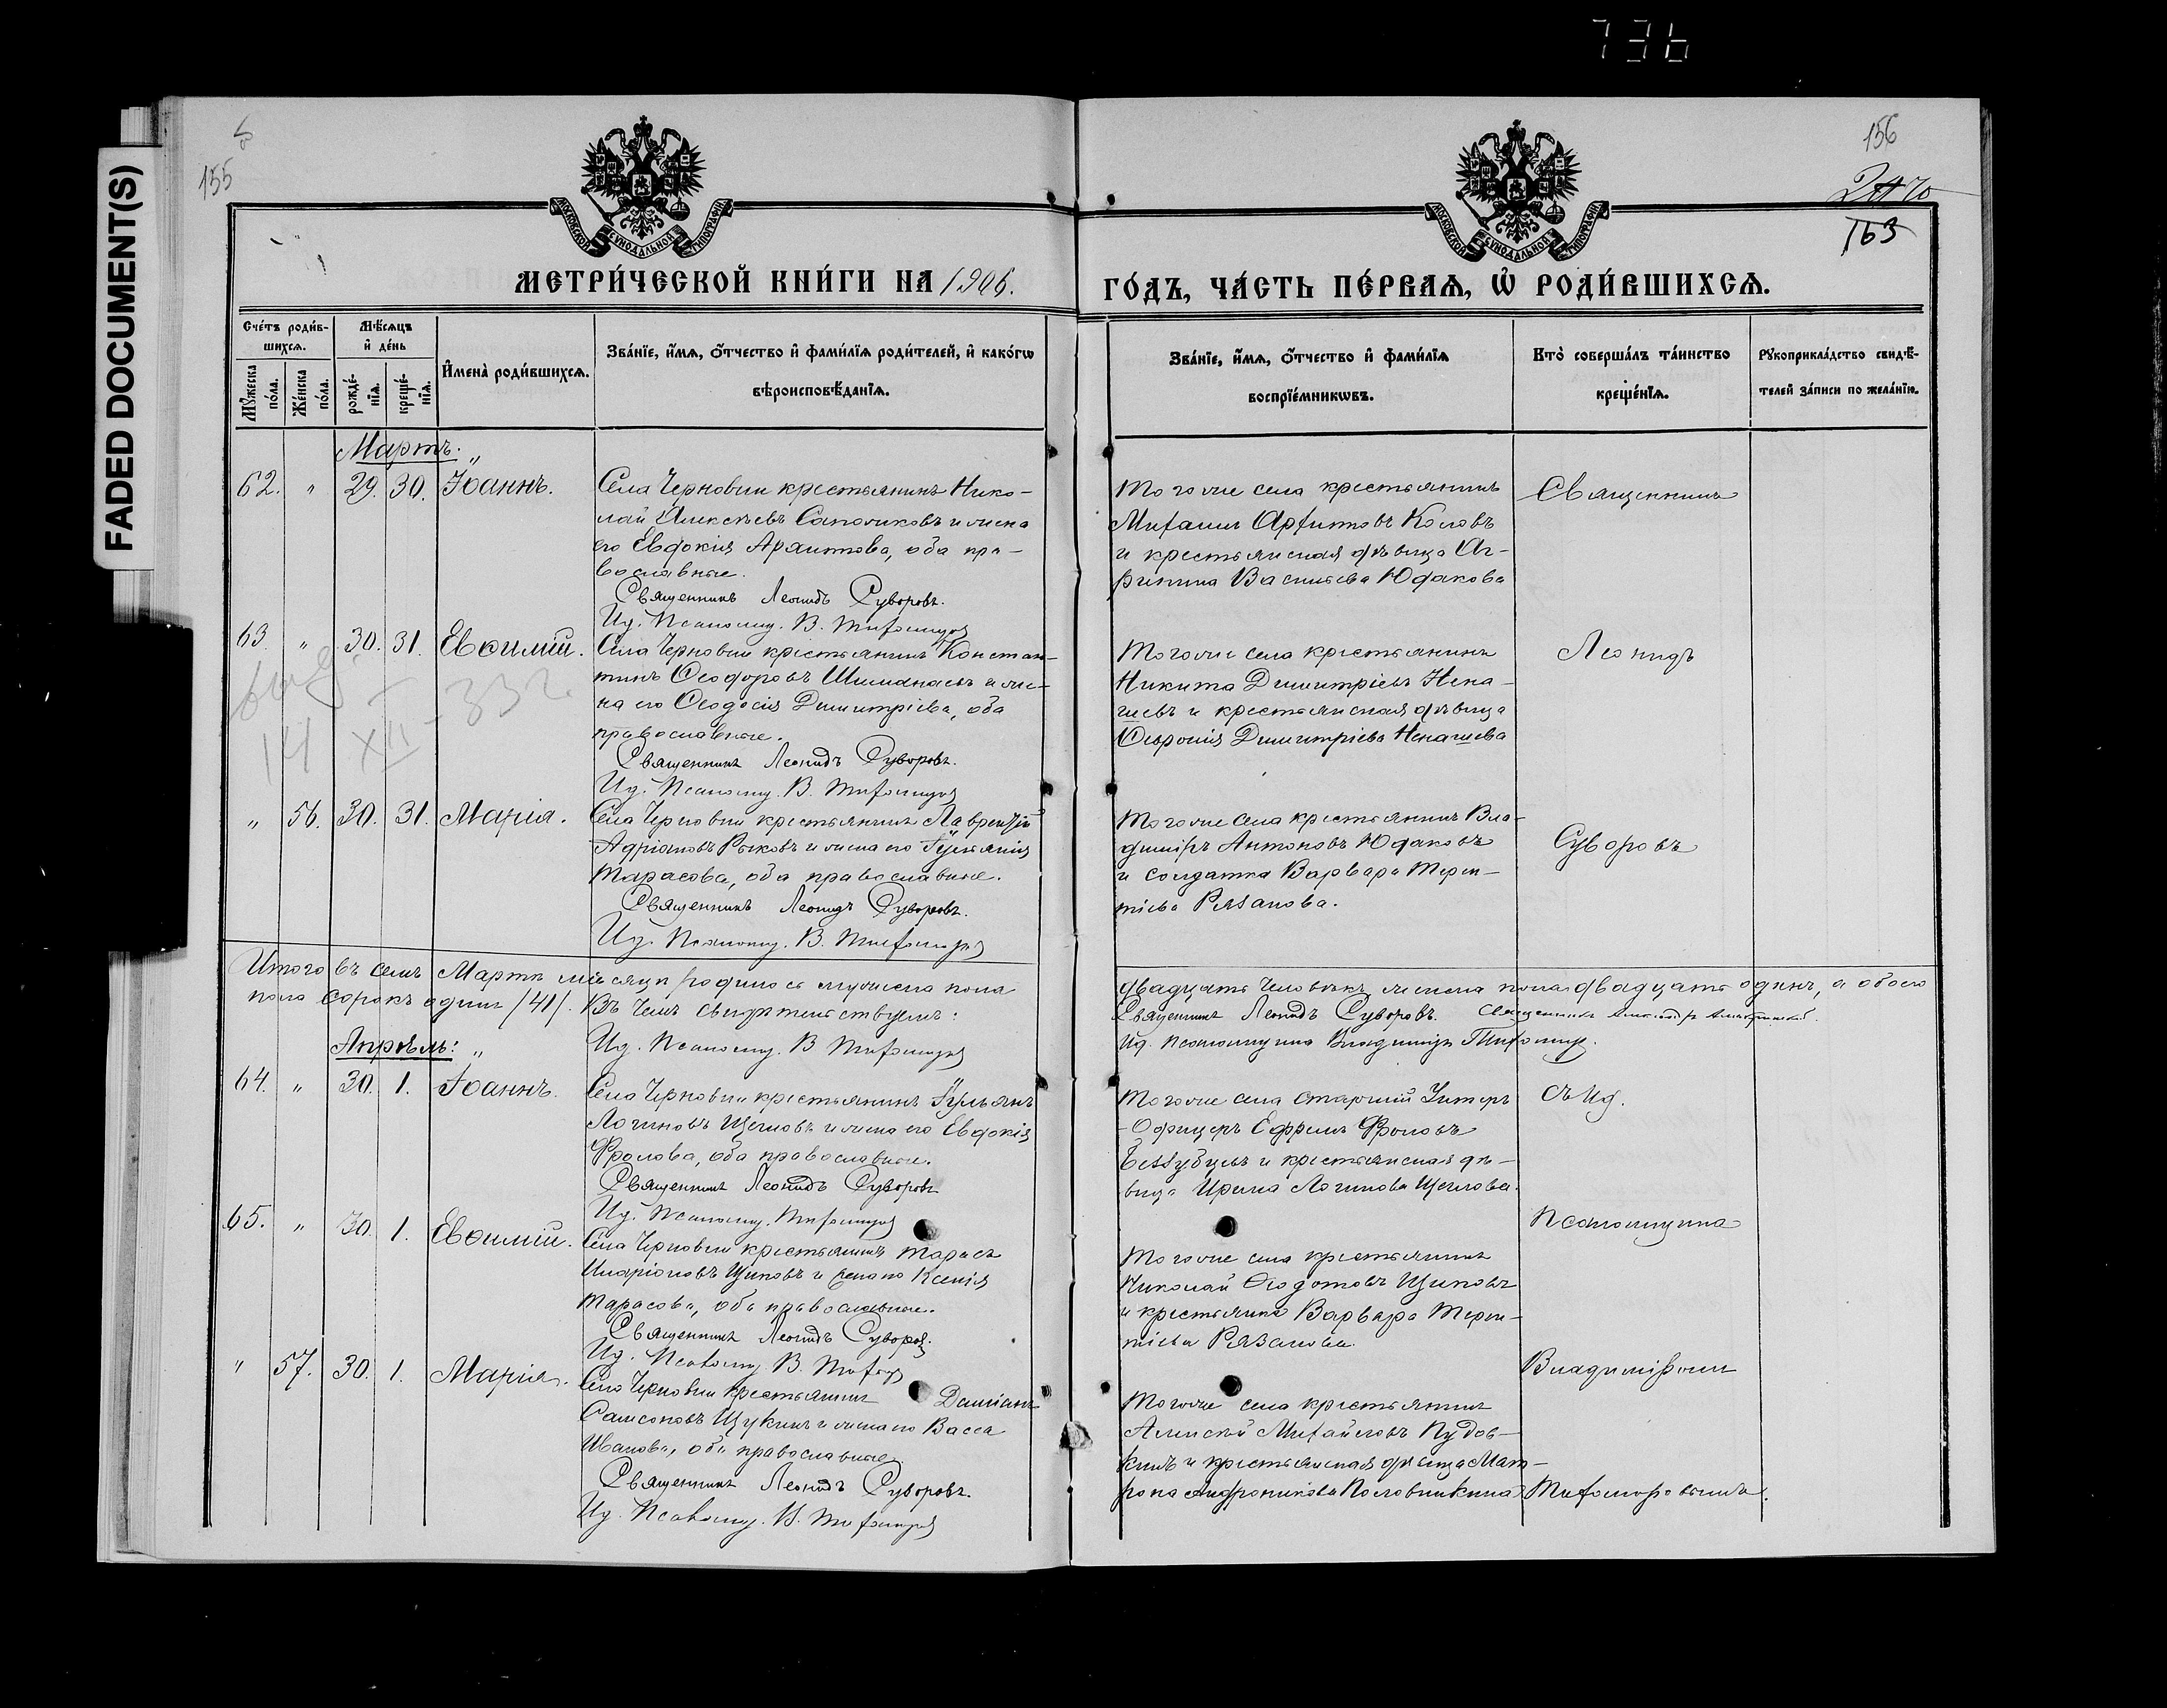 736
FADED DOCUMENT(S)
155
156
163
МОСКОВСКОЙ СѴНОДАЛЬНОЙ ТИПОГРАФІИ
МОСКОВСКОЙ СѴНОДАЛЬНОЙ ТИПОГРАФІИ
МЕТРИ́ЧЕСКОЙ КНИ́ГИ НА 1906.
ГО́ДЪ, ЧА́СТЬ ПЕ́РВАѦ, Ѡ҆ РОДИ́ВШИХСѦ.
Сче́тъ роди́в-
шихсѧ.
Мѣ́сѧцъ
и҆ де́нь
Мꙋ́жеска по́ла.
Же́нска по́ла.
рожде́-
нїѧ.
креще́-
нїѧ.
И҆мена̀ роди́вшихсѧ.
Зва́нїе, и҆́мѧ, ѻ҆́тчество и҆ фами́лїѧ роди́телей, и҆ како́гѡ
вѣроисповѣ́данїѧ.
Зва́нїе, и҆́мѧ, ѻ҆́тчество и҆ фами́лїѧ
воспрїе́мникѡвъ.
Кто̀ соверша́лъ та́инство
креще́нїѧ.
Рꙋкоприкла́дство свидѣ́-
телей за́писи по жела́нїю.
Мартъ.
62. " 29. 30. Іоаннъ.
Села Черновки крестьянинъ Нико-
лай Алексѣевъ Сапожковъ и жена
его Евдокія Архипова, оба пра-
вославные.
Священникъ Леонидъ Суворовъ.
Ид. Псаломщ. В. Тихомиров
Тогоже села крестьянинъ
Михаилъ Архиповъ Козловъ
и крестьянская дѣвица Аг-
рипина Васильева Юдакова
Священникъ
63. " 30. 31. Евѳимій.
Села Черновки крестьянинъ Констан-
тинъ Ѳеодоровъ и же-
на его Ѳеодосія Димитріева, оба
православные.
Священникъ Леонидъ Суворовъ.
Ид. Псаломщ. В. Тихомиров
Тогоже села крестьянинъ
Никита Димитріевъ Нена-
шевъ и крестьянская дѣвица
Ѳеvронія Димитріева Ненашева
Леонидъ
14 XII - 33 г.
" 56. 30. 31. Марія.
Села Черновки крестьянинъ Лаврентій
Адріановъ Рыковъ и жена его Іуліанія
Тарасова, оба православные.
Священникъ Леонидъ Суворовъ.
Ид. Псаломщ. В. Тихомиров
Тогоже села крестьянинъ Вла-
димиръ Антоновъ Юдаковъ
и солдатка Варвара Терен-
тіева Рязанова.
Суворовъ
Итого въ семъ Мартѣ мѣсяцѣ родилось мужеска пола
двадцать человѣкъ, женска пола двадцать одинъ, а обоего
пола сорокъ одинъ /41/. Въ чемъ свидѣтельствуемъ:
Священникъ Леонидъ Суворовъ.
Ид. Псаломщ. В. Тихомиров
Ид. псаломщика Владимиръ Тихомир.
Апрѣль:
64. " 30. 1. Іоаннъ.
Села Черновки крестьянинъ Іульянъ
Логиновъ Щегловъ и жена его Евдокія
Фролова, оба православные.
Священникъ Леонидъ Суворовъ
Ид. Псаломщ. Тихомиров
Тогоже села старшій Унтеръ
-Офицеръ Ефремъ Фроловъ
Беззубцевъ и крестьянская дѣ-
вица Ирина Логинова Щеглова.
съ Ид.
65. " 30. 1. Евѳимій.
Села Черновки крестьянинъ Тарасъ
Иларіоновъ Щукинъ и жена его Ксенія
Тарасова, оба православные.
Священникъ Леонидъ Суворов.
Ид. Псаломщ. В. Тихомир
Тогоже села крестьянинъ
Николай Ѳедотовъ Щукинъ
и крестьянка Варвара Терен-
тіева Рязанова.
Псаломщика
" 57. 30. 1. Марія.
Села Черновки крестьянинъ Даміанъ
Самсоновъ Щукинъ и жена его Васса
Иванова, оба православные
Священникъ Леонидъ Суворовъ.
Ид. Псаломщ. В. Тихомиров
Владиміромъ
Тогоже села крестьянинъ
Алексѣй Михайловъ Пудов-
кинъ и крестьянская дѣвица Мат-
рона Андроникова Половинкина
Тихомировымъ.